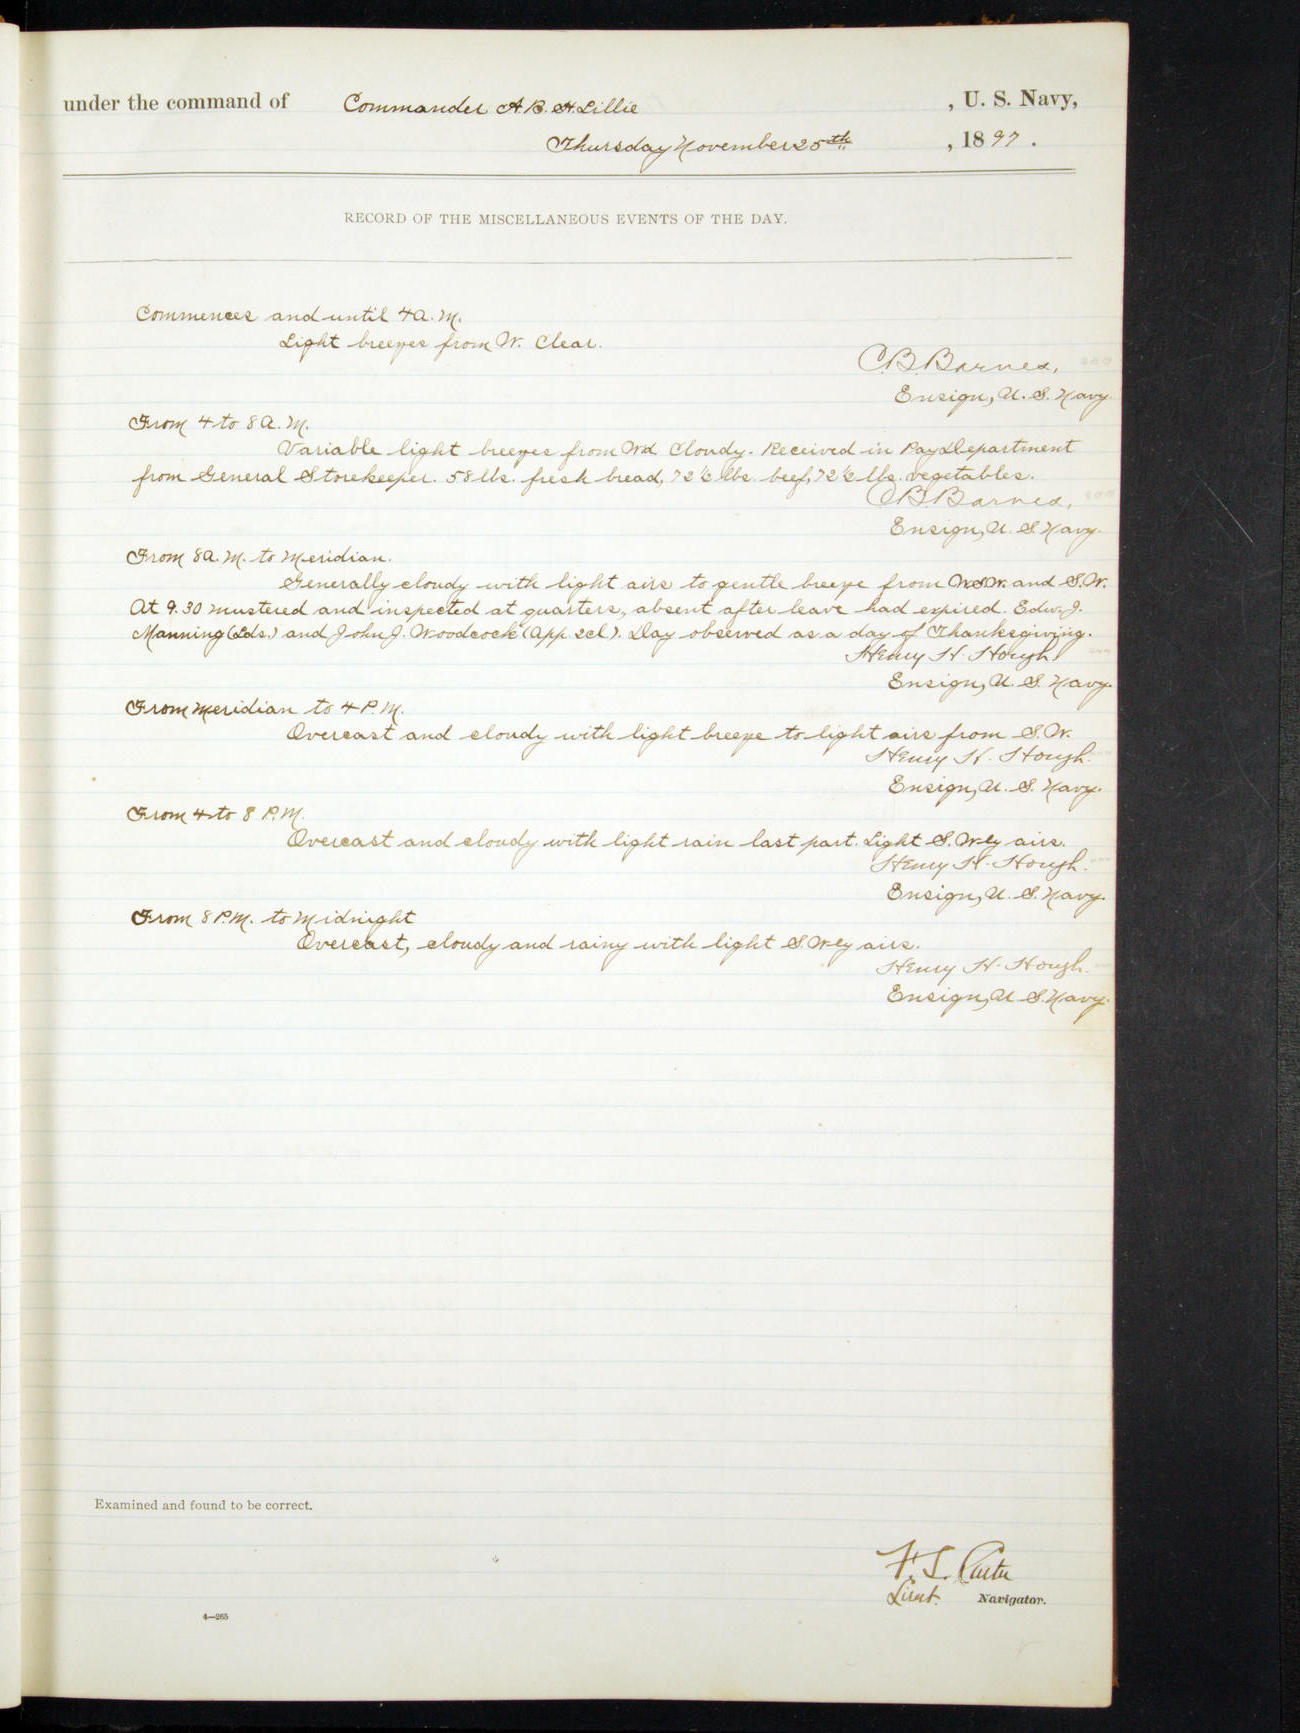 under the command of Commander A. B. H. Lillie, U. S. Navy,
Thursday November 25th, 1897.
RECORD OF THE MISCELLANEOUS EVENTS OF THE DAY.
Commences and until 4 A. M.
Light breezes from W. Clear.
C. B. Barnes,
Ensign, U. S. Navy.
From 4 to 8 A. M.
Variable light breezes from Wd. Cloudy. Received in Pay Department
from General Storekeeper. 58 lbs. fresh bread, 72½ lbs. beef, 72½ lbs. vegetables.
C. B. Barnes,
Ensign, U. S. Navy.
From 8 A. M. to Meridian.
Generally cloudy with light airs to gentle breeze from W.S.W. and S.W.
At 9.30 mustered and inspected at quarters, absent after leave had expired. Edw. J.
Manning (Lds.) and John J. Woodcock (App. 2cl). Day observed as a day of Thanksgiving.
Henry H. Hough,
Ensign, U. S. Navy.
From Meridian to 4 P. M.
Overcast and cloudy with light breeze to light airs from S. W.
Henry H. Hough.
Ensign, U. S. Navy.
From 4 to 8 P. M.
Overcast and cloudy with light rain last part. Light S. W'ly airs.
Henry H. Hough.
Ensign, U. S. Navy.
From 8 P. M. to Midnight
Overcast, cloudy and rainy with light S. W'ly airs.
Henry H. Hough.
Ensign, U. S. Navy.
Examined and found to be correct.
Lieut. Navigator.
4—265